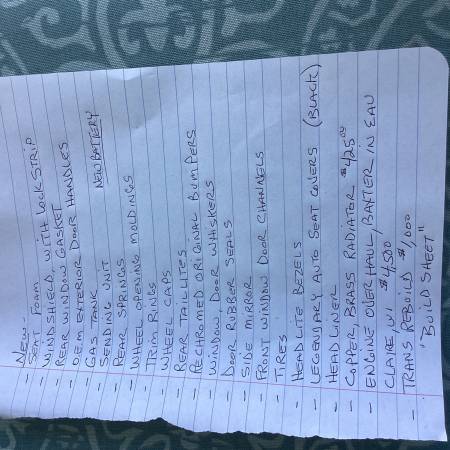 NEW-
- SEAT FOAM
- WINDSHIELD, WITH LOCKSTRIP
- REAR WINDOW GASKET
- O.E.M. EXTERIOR DOOR HANDLES
- GAS TANK NEW BATTERY
- SENDING UNIT
- REAR SPRINGS
- WHEEL OPENING MOLDINGS
- TRIM RINGS
- WHEEL CAPS
- REAR TAILLITES
- RECHROMED ORIGINAL BUMPERS
- WINDOW, DOOR WHISKERS
- DOOR RUBBER SEALS
- SIDE MIRROR
- FRONT WINDOW DOOR CHANNELS
- TIRES
- HEADLITE BEZELS
- LEGENDARY AUTO SEAT COVERS (BLACK)
- HEADLINER
- COPPER, BRASS RADIATOR $425.00
- ENGINE OVERHAUL, BAXTER IN EAU
CLAIRE, WI $4,500
- TRANS REBUILD $1,000
"BUILD SHEET"